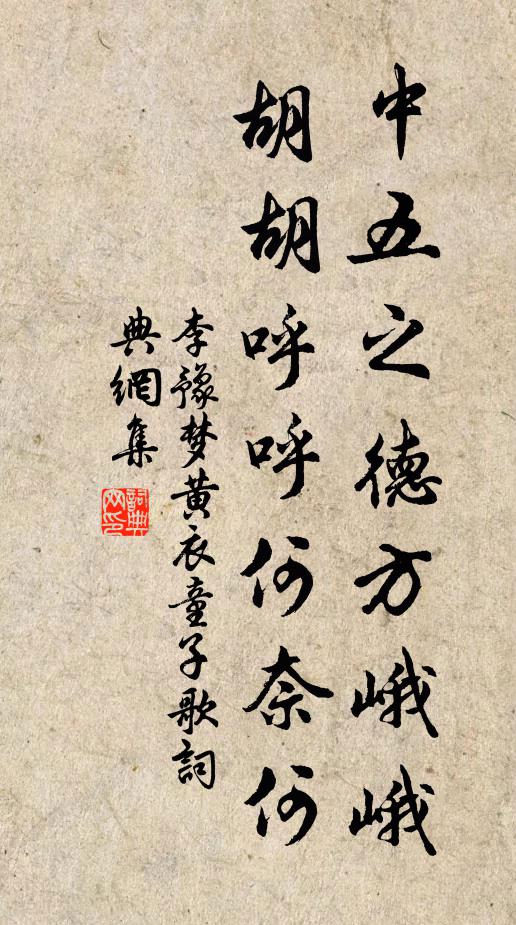 中五之德方峨峨
胡胡呼呼何奈何
李豫梦黄衣童子歌詞
典網集
詞典网印